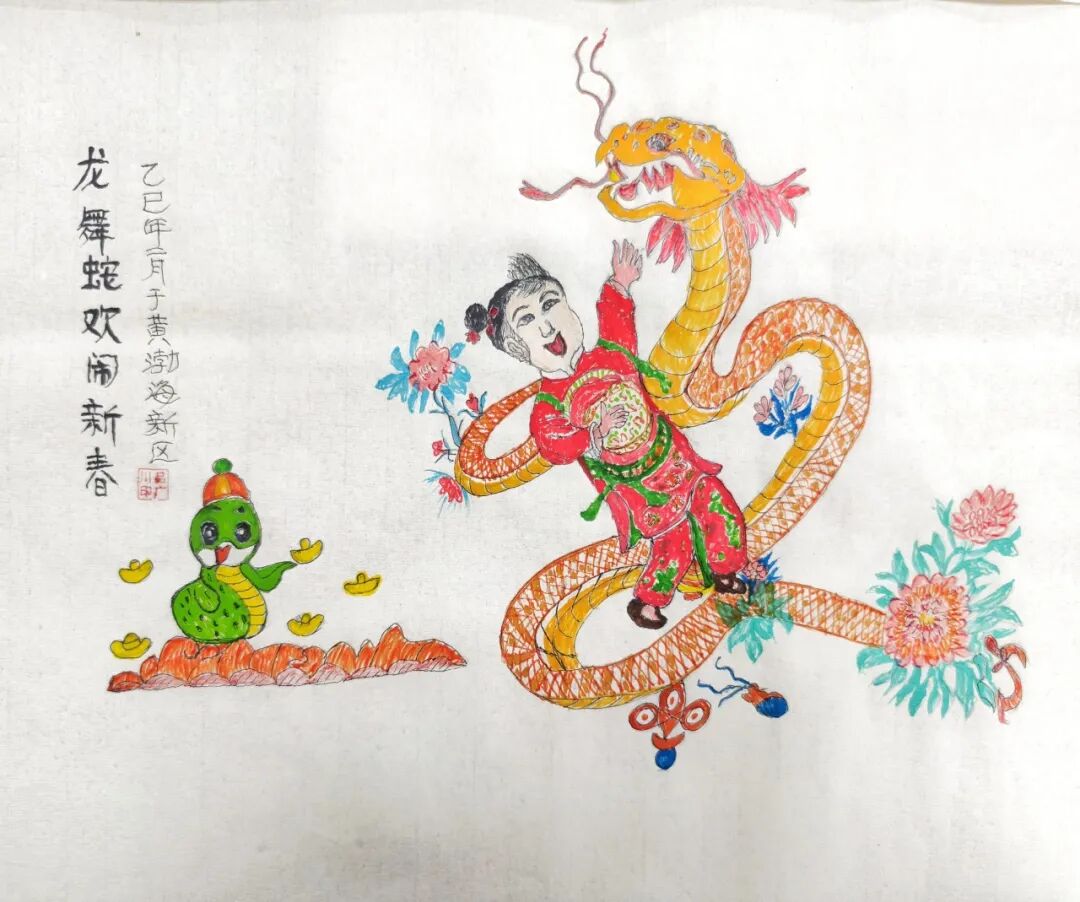 龙舞蛇欢闹新春
乙巳年二月于黄渤海新区
广川印